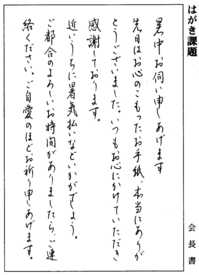 はがき課題
会長書
暑中お伺い申しあげます
先日はお心のこもったお手紙、本当にありが
とうございました。いつもお心にかけていただき
感謝しております。
近いうちに暑気払などいかがでしょう。
ご都合のよろしいお時間がありましたらご連
絡ください。ご自愛のほどお祈り申しあげます。